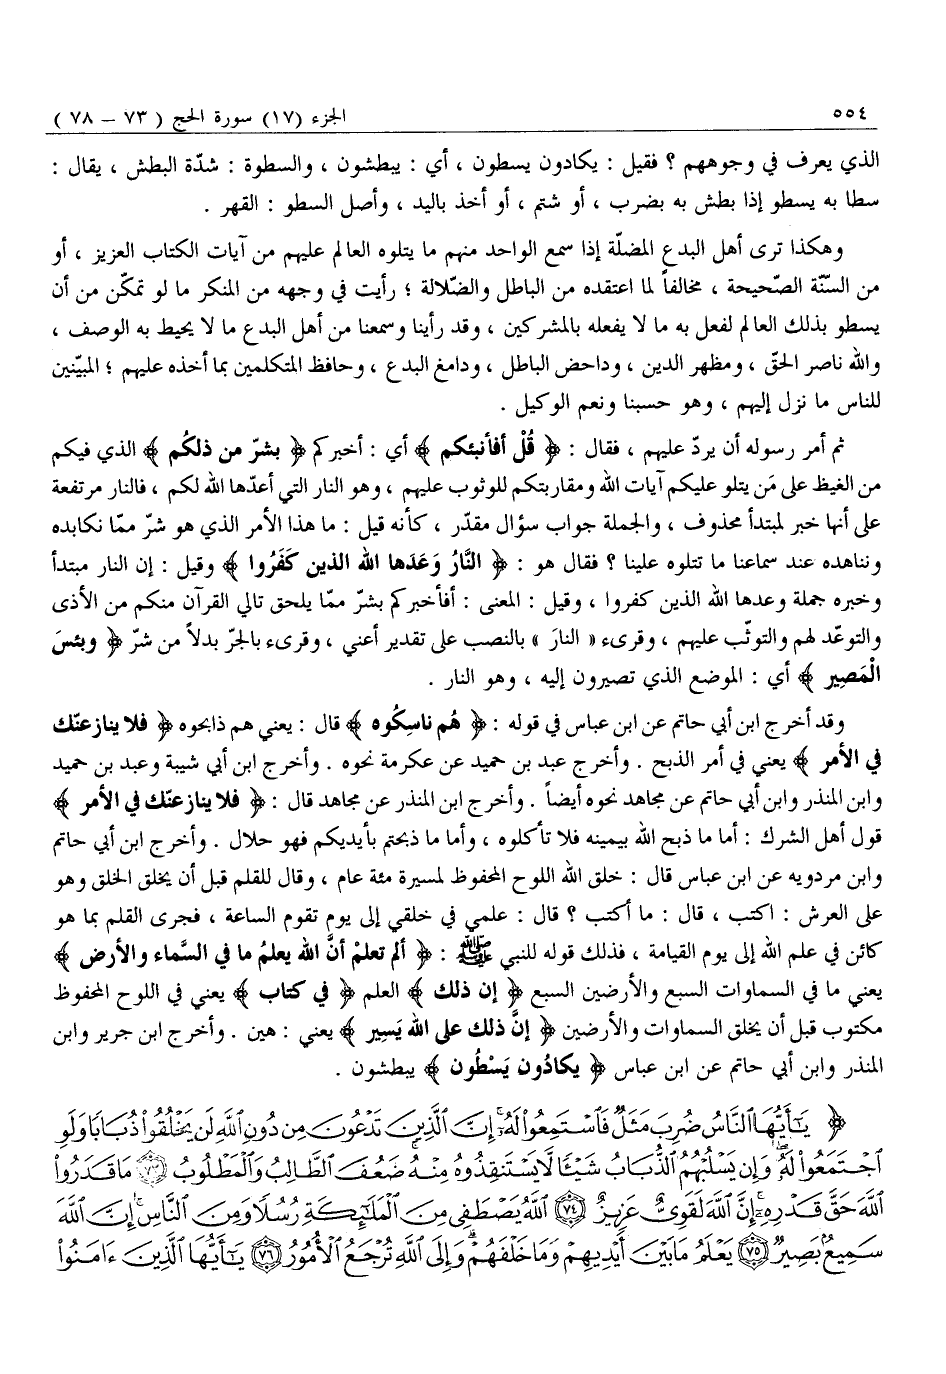 ٥٥٤
الجزء (١٧) سورة الحج ( ٧٣ – ٧٨ )
الذي يعرف في وجوههم ؟ فقيل : يكادون يسطون ، أي : يبطشون ، والسطوة : شدّة البطش ، يقال :
سطا به يسطو إذا بطش به بضرب ، أو شتم ، أو أخذ باليد ، وأصل السطو : القهر .
وهكذا ترى أهل البدع المضلّة إذا سمع الواحد منهم ما يتلوه العالم عليهم من آيات الكتاب العزيز ، أو
من السنّة الصّحيحة ، مخالفاً لما اعتقده من الباطل والضّلالة ؛ رأيت في وجهه من المنكر ما لو تمكّن من أن
يسطو بذلك العالم لفعل به ما لا يفعله بالمشركين ، وقد رأينا وسمعنا من أهل البدع ما لا يحيط به الوصف ،
والله ناصر الحقّ ، ومظهر الدين ، وداحض الباطل ، ودامغ البدع ، وحافظ المتكلمين بما أخذه عليهم ؛ المبيّنين
للناس ما نزل إليهم ، وهو حسبنا ونعم الوكيل .
ثم أمر رسوله أن يردّ عليهم ، فقال : ﴿ قُلْ أفأنبئكم ﴾ أي : أخبركم ﴿ بشرّ من ذلكُم ﴾ الذي فيكم
من الغيظ على مَن يتلو عليكم آيات الله ومقاربتكم للوثوب عليهم ، وهو النار التي أعدّها الله لكم ، فالنار مرتفعة
على أنها خبر لمبتدأ محذوف ، والجملة جواب سؤال مقدّر ، كأنه قيل : ما هذا الأمر الذي هو شرّ ممّا نكابده
ونناهده عند سماعنا ما تتلوه علينا ؟ فقال هو : ﴿ النَّارُ وَعَدَها الله الذين كَفَرُوا ﴾ وقيل : إن النار مبتدأ
وخبره جملة وعدها الله الذين كفروا ، وقيل : المعنى : أفأخبركم بشرّ ممّا يلحق تالي القرآن منكم من الأذى
والتوعّد لهم والتوثّب عليهم ، وقرىء « النارَ » بالنصب على تقدير أعني ، وقرىء بالجرّ بدلاً من شرّ ﴿ وبئسَ
الْمَصِير ﴾ أي : الموضع الذي تصيرون إليه ، وهو النار .
وقد أخرج ابن أبي حاتم عن ابن عباس في قوله : ﴿ هُم ناسِكُوه ﴾ قال : يعني هم ذابحوه ﴿ فلا ينازعنّك
في الأمر ﴾ يعني في أمر الذبح . وأخرج عبد بن حميد عن عكرمة نحوه . وأخرج ابن أبي شيبة وعبد بن حميد
وابن المنذر وابن أبي حاتم عن مجاهد نحوه أيضاً . وأخرج ابن المنذر عن مجاهد قال : ﴿ فلا ينازعنّك في الأمر ﴾
قول أهل الشرك : أما ما ذبح الله بيمينه فلا تأكلوه ، وأما ما ذبحتم بأيديكم فهو حلال . وأخرج ابن أبي حاتم
وابن مردويه عن ابن عباس قال : خلق الله اللوح المحفوظ لمسيرة مئة عام ، وقال للقلم قبل أن يخلق الخلق وهو
على العرش : اكتب ، قال : ما أكتب ؟ قال : علمي في خلقي إلى يوم تقوم الساعة ، فجرى القلم بما هو
كائن في علم الله إلى يوم القيامة ، فذلك قوله للنبي ﷺ : ﴿ ألم تعلمْ أنَّ الله يعلمُ ما في السَّماء والأرض ﴾
يعني ما في السماوات السبع والأرضين السبع ﴿ إن ذلك ﴾ العلم ﴿ في كتاب ﴾ يعني في اللوح المحفوظ
مكتوب قبل أن يخلق السماوات والأرضين ﴿ إنَّ ذلك على الله يَسِير ﴾ يعني : هين . وأخرج ابن جرير وابن
المنذر وابن أبي حاتم عن ابن عباس ﴿ يكادُون يَسْطُون ﴾ يبطشون .
﴿ يَٰٓأَيُّهَا ٱلنَّاسُ ضُرِبَ مَثَلٌ فَٱسْتَمِعُوا۟ لَهُۥٓ إِنَّ ٱلَّذِينَ تَدْعُونَ مِن دُونِ ٱللَّهِ لَن يَخْلُقُوا۟ ذُبَابًا وَلَوِ
ٱجْتَمَعُوا۟ لَهُۥ وَإِن يَسْلُبْهُمُ ٱلذُّبَابُ شَيْـًٔا لَّا يَسْتَنقِذُوهُ مِنْهُ ضَعُفَ ٱلطَّالِبُ وَٱلْمَطْلُوبُ ٧٣ مَا قَدَرُوا۟
ٱللَّهَ حَقَّ قَدْرِهِۦٓ إِنَّ ٱللَّهَ لَقَوِىٌّ عَزِيزٌ ٧٤ ٱللَّهُ يَصْطَفِى مِنَ ٱلْمَلَٰٓئِكَةِ رُسُلًا وَمِنَ ٱلنَّاسِ إِنَّ ٱللَّهَ
سَمِيعٌۢ بَصِيرٌ ٧٥ يَعْلَمُ مَا بَيْنَ أَيْدِيهِمْ وَمَا خَلْفَهُمْ وَإِلَى ٱللَّهِ تُرْجَعُ ٱلْأُمُورُ ٧٦ يَٰٓأَيُّهَا ٱلَّذِينَ ءَامَنُوا۟